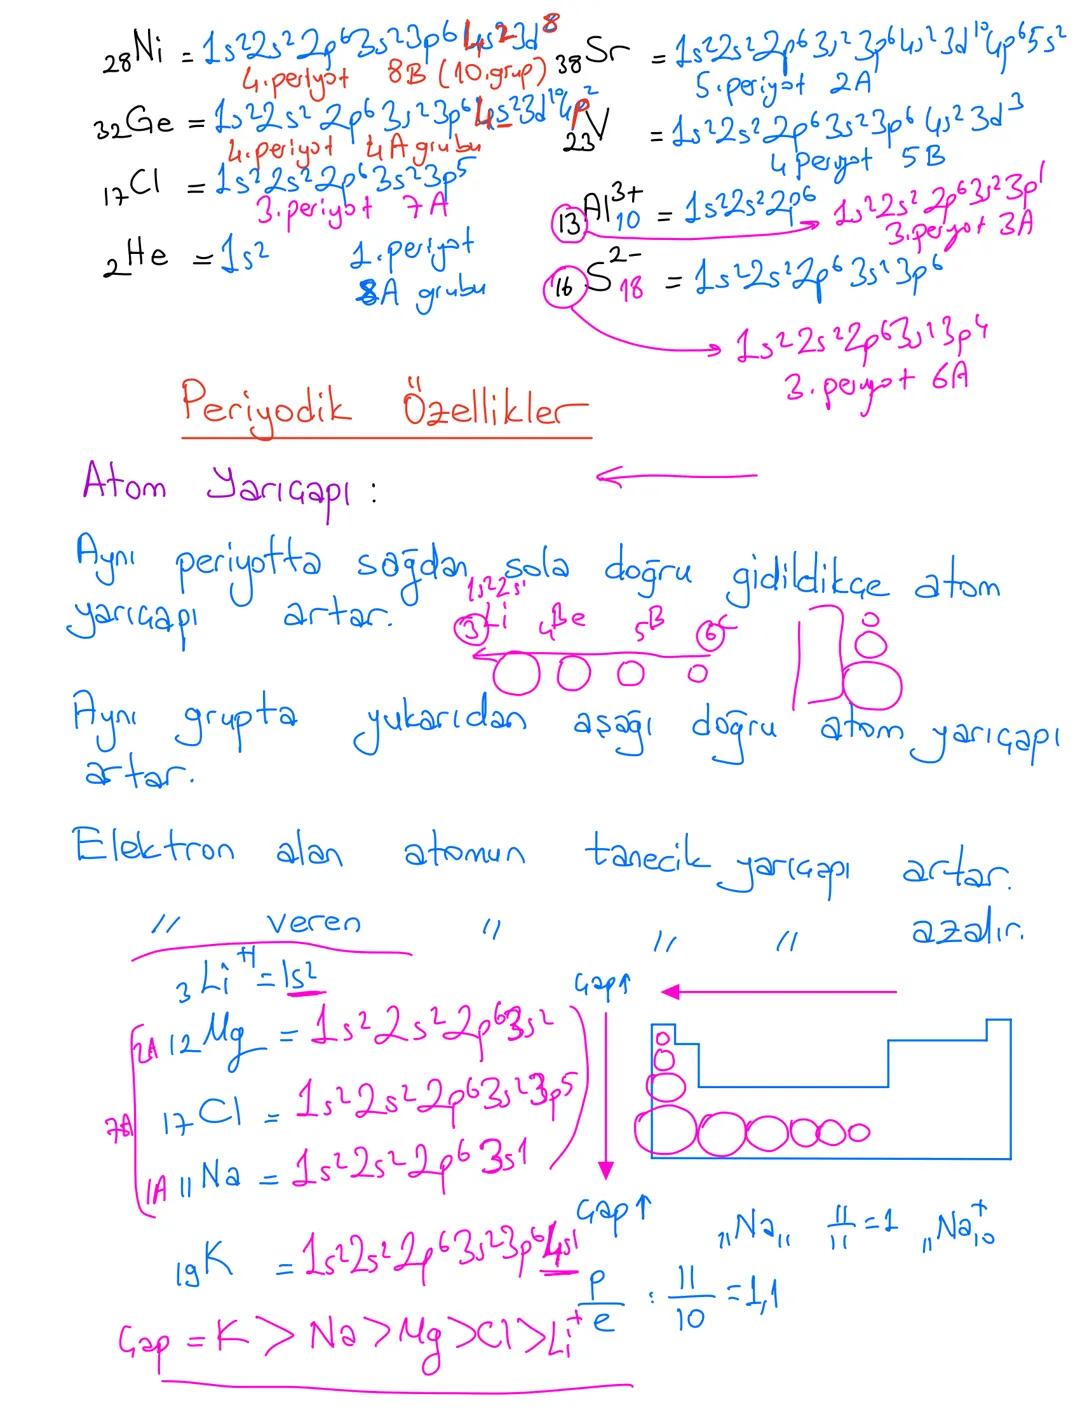 ₂₈Ni = 1s²2s²2p⁶3s²3p⁶4s²3d⁸
4.periyot 8B (10.grup)
₃₈Sr = 1s²2s²2p⁶3s²3p⁶4s²3d¹⁰4p⁶5s²
5.periyot 2A
₃₂Ge = 1s²2s²2p⁶3s²3p⁶4s²3d¹⁰4p²
4.periyot 4A grubu
₂₃V = 1s²2s²2p⁶3s²3p⁶4s²3d³
4 periyot 5B
₁₇Cl = 1s²2s²2p⁶3s²3p⁵
3.periyot 7A
₁₃Al³⁺₁₀ = 1s²2s²2p⁶ 1s²2s²2p⁶3s²3p¹
3.periyot 3A
₂He = 1s² 1.periyot
8A grubu
₁₆S²⁻₁₈ = 1s²2s²2p⁶3s²3p⁶
1s²2s²2p⁶3s²3p⁴
3.periyot 6A
Periyodik Özellikler
Atom Yarıçapı :
Aynı periyotta sağdan sola doğru gidildikçe atom
yarıçapı artar.
1s²2s¹
₃Li ₄Be ₅B ₆C
Aynı grupta yukarıdan aşağı doğru atom yarıçapı
artar.
Elektron alan atomun tanecik yarıçapı artar.
" veren " " " azalır.
₃Li⁺¹ = 1s²
Çap↑
2A ₁₂Mg = 1s²2s²2p⁶3s²
7A ₁₇Cl = 1s²2s²2p⁶3s²3p⁵
1A ₁₁Na = 1s²2s²2p⁶3s1
Çap↑
₁₁Na₁₁ 11/11 = 1 ₁₁Na⁺₁₀
₁₉K = 1s²2s²2p⁶3s²3p⁶4s¹
p/e : 11/10 = 1,1
Çap = K > Na > Mg > Cl > Li⁺